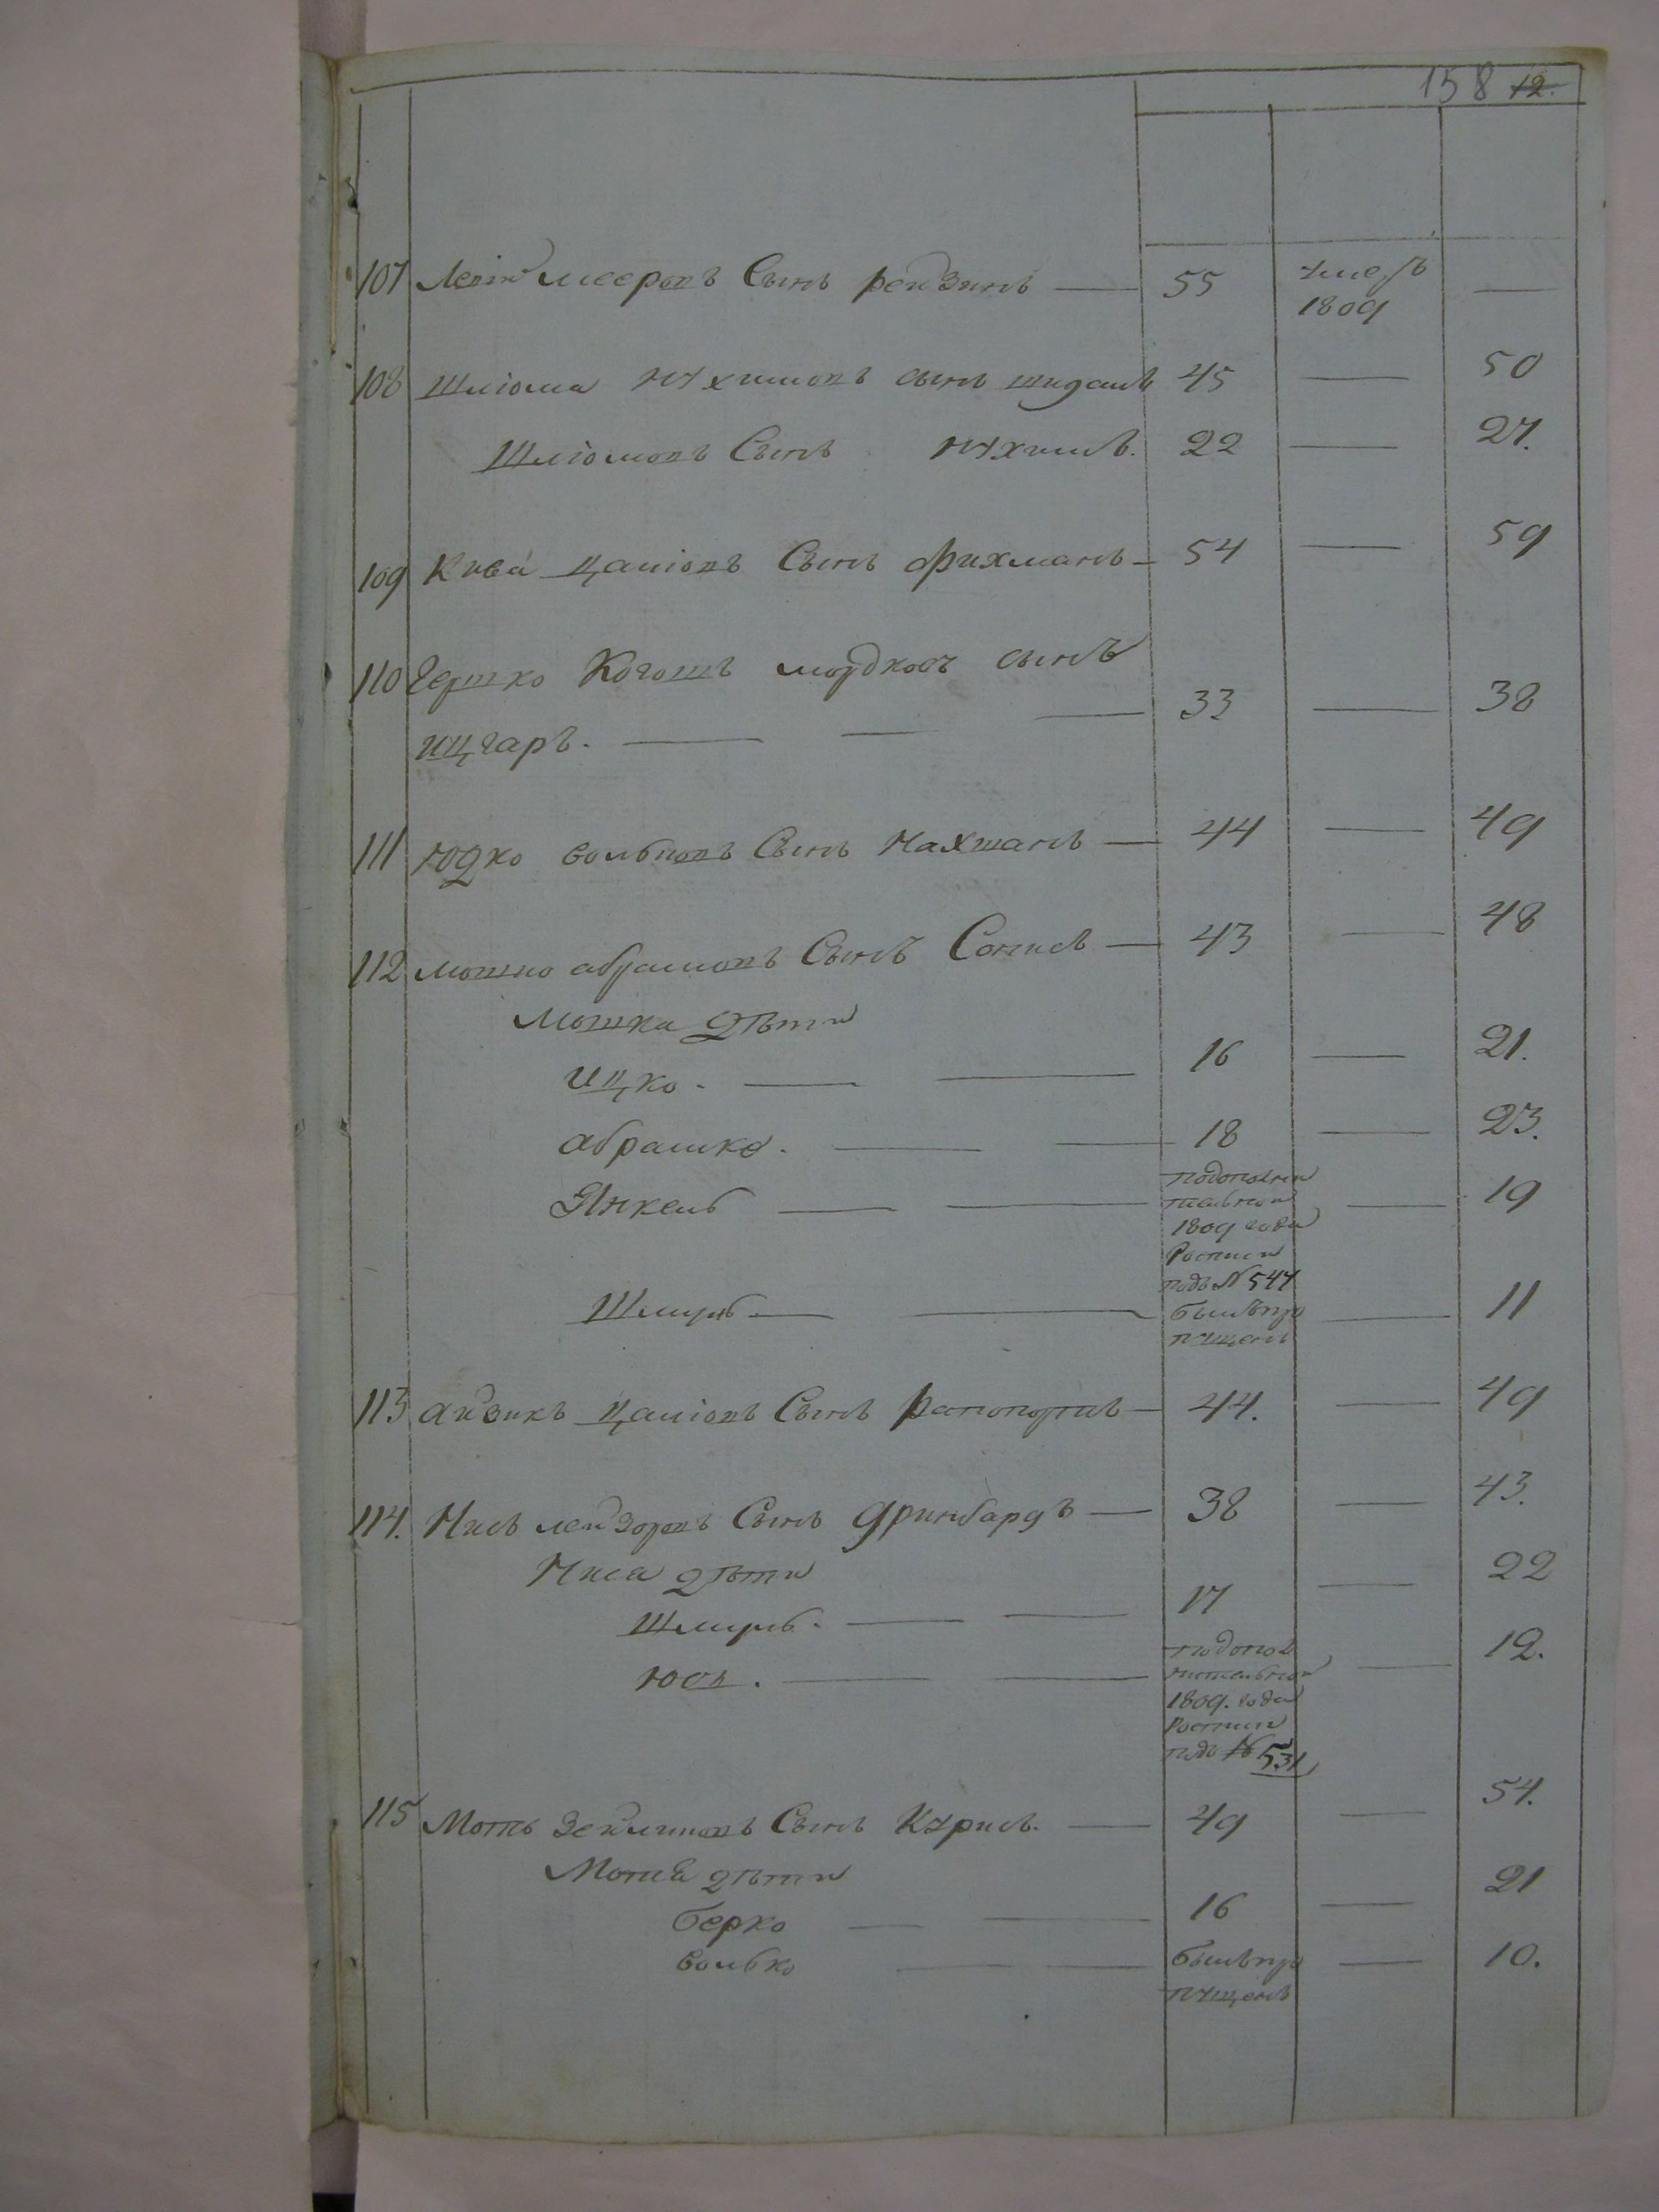 158 12.
107 Лейбъ мееровъ Сынъ рейзинъ — 55 умеръ 1809 —
108 Шліома нухимовъ сынъ шидалъ 45 — 50
Шліомовъ Сынъ нухимъ. 22 — 27.
109 Кива цаліовъ Сынъ фихманъ — 54 — 59
110 Гершко Когошъ мордковъ сынъ
ицгаръ. — 33 — 38
111 юдко вольковъ Сынъ Нахманъ — 44 — 49
112 мошко абрамовъ Сынъ Сонисъ — 43 — 48
Мошка дѣти
ицко. — 16 — 21.
абрашко. — 18 — 23.
Янкель — подополни
тельной
1809 года
Росписи
подъ N 547 — 19
Шмуль — былъ про
пущенъ — 11
113 айзикъ цаліовъ Сынъ рапопортъ — 44. — 49
114. Нисъ лейзоровъ Сынъ Гринбардъ — 38 — 43.
Ниса дѣти
Шмуль. — 17 — 22
юсъ. — подопол
нительной
1809. года
Росписи
подъ N 531 — 12.
115 Мотъ Зейликовъ Сынъ Курисъ. — 49 — 54.
Мотя дѣти
берко — 16 — 21
волько — былъ про
пущенъ — 10.